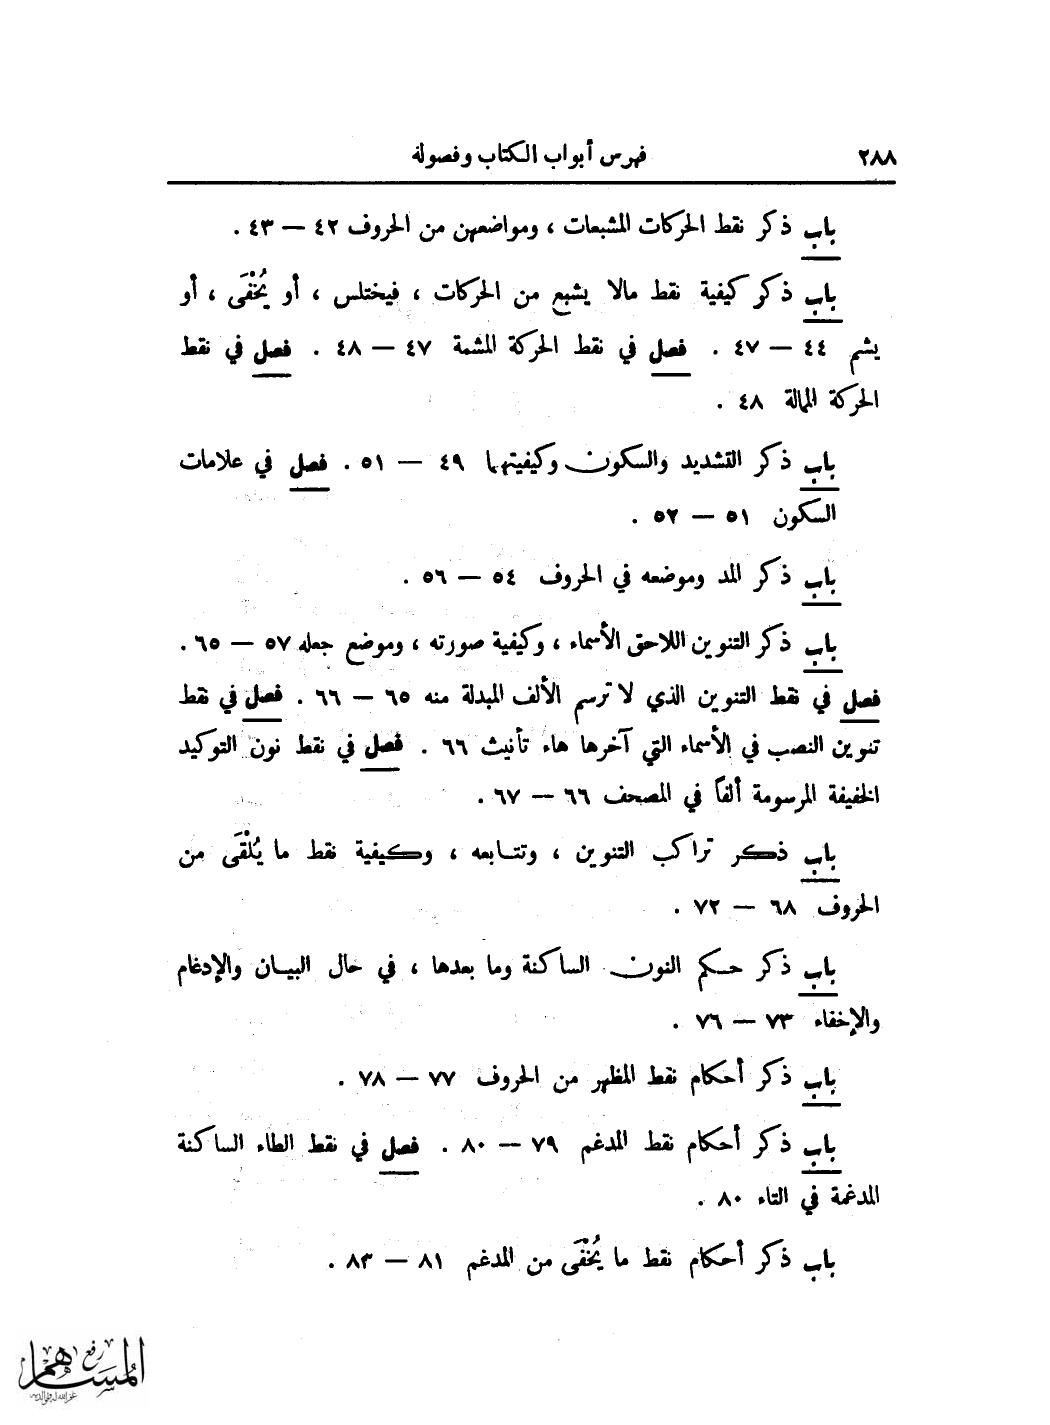 ٢٨٨
فهرس أبواب الكتاب وفصولة
باب ذكر نقط الحركات المشبعات ، ومواضعهن من الحروف ٤٢ — ٤٣ .
باب ذكر كيفية نقط مالا يشبع من الحركات ، فيختلس ، أو يُخْفَى ، أو
يشم ٤٤ — ٤٧ . فصل في نقط الحركة المشمة ٤٧ — ٤٨ . فصل في نقط
الحركة الممالة ٤٨ .
باب ذكر التشديد والسكون وكيفيتهما ٤٩ — ٥١ . فصل في علامات
السكون ٥١ — ٥٢ .
باب ذكر المد وموضعه في الحروف ٥٤ — ٥٦ .
باب ذكر التنوين اللاحق الأسماء ، وكيفية صورته ، وموضع جعله ٥٧ — ٦٥ .
فصل في نقط التنوين الذي لا ترسم الألف المبدلة منه ٦٥ — ٦٦ . فصل في نقط
تنوين النصب في الأسماء التي آخرها هاء تأنيث ٦٦ . فصل في نقط نون التوكيد
الخفيفة المرسومة ألفاً في المصحف ٦٦ — ٦٧ .
باب ذكر تراكب التنوين ، وتتابعه ، وكيفية نقط ما يُلْقَى من
الحروف ٦٨ — ٧٢ .
باب ذكر حكم النون الساكنة وما بعدها ، في حال البيان والإدغام
والإخفاء ٧٣ — ٧٦ .
باب ذكر أحكام نقط المظهر من الحروف ٧٧ — ٧٨ .
باب ذكر أحكام نقط المدغم ٧٩ — ٨٠ . فصل في نقط الطاء الساكنة
المدغمة في التاء ٨٠ .
باب ذكر أحكام نقط ما يُخْفَى من المدغم ٨١ — ٨٣ .
رفع
المساهم
غفر الله له ولوالديه